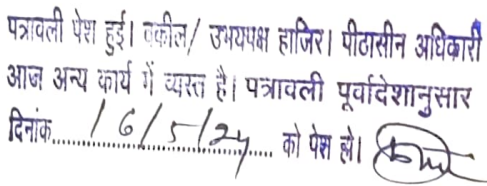 पत्रावली पेश हुई। वकील/ उभयपक्ष हाजिर। पीठासीन अधिकारी
आज अन्य कार्य में व्यस्त है। पत्रावली पूर्वादेशानुसार
दिनांक......16/5/24...... को पेश हो।